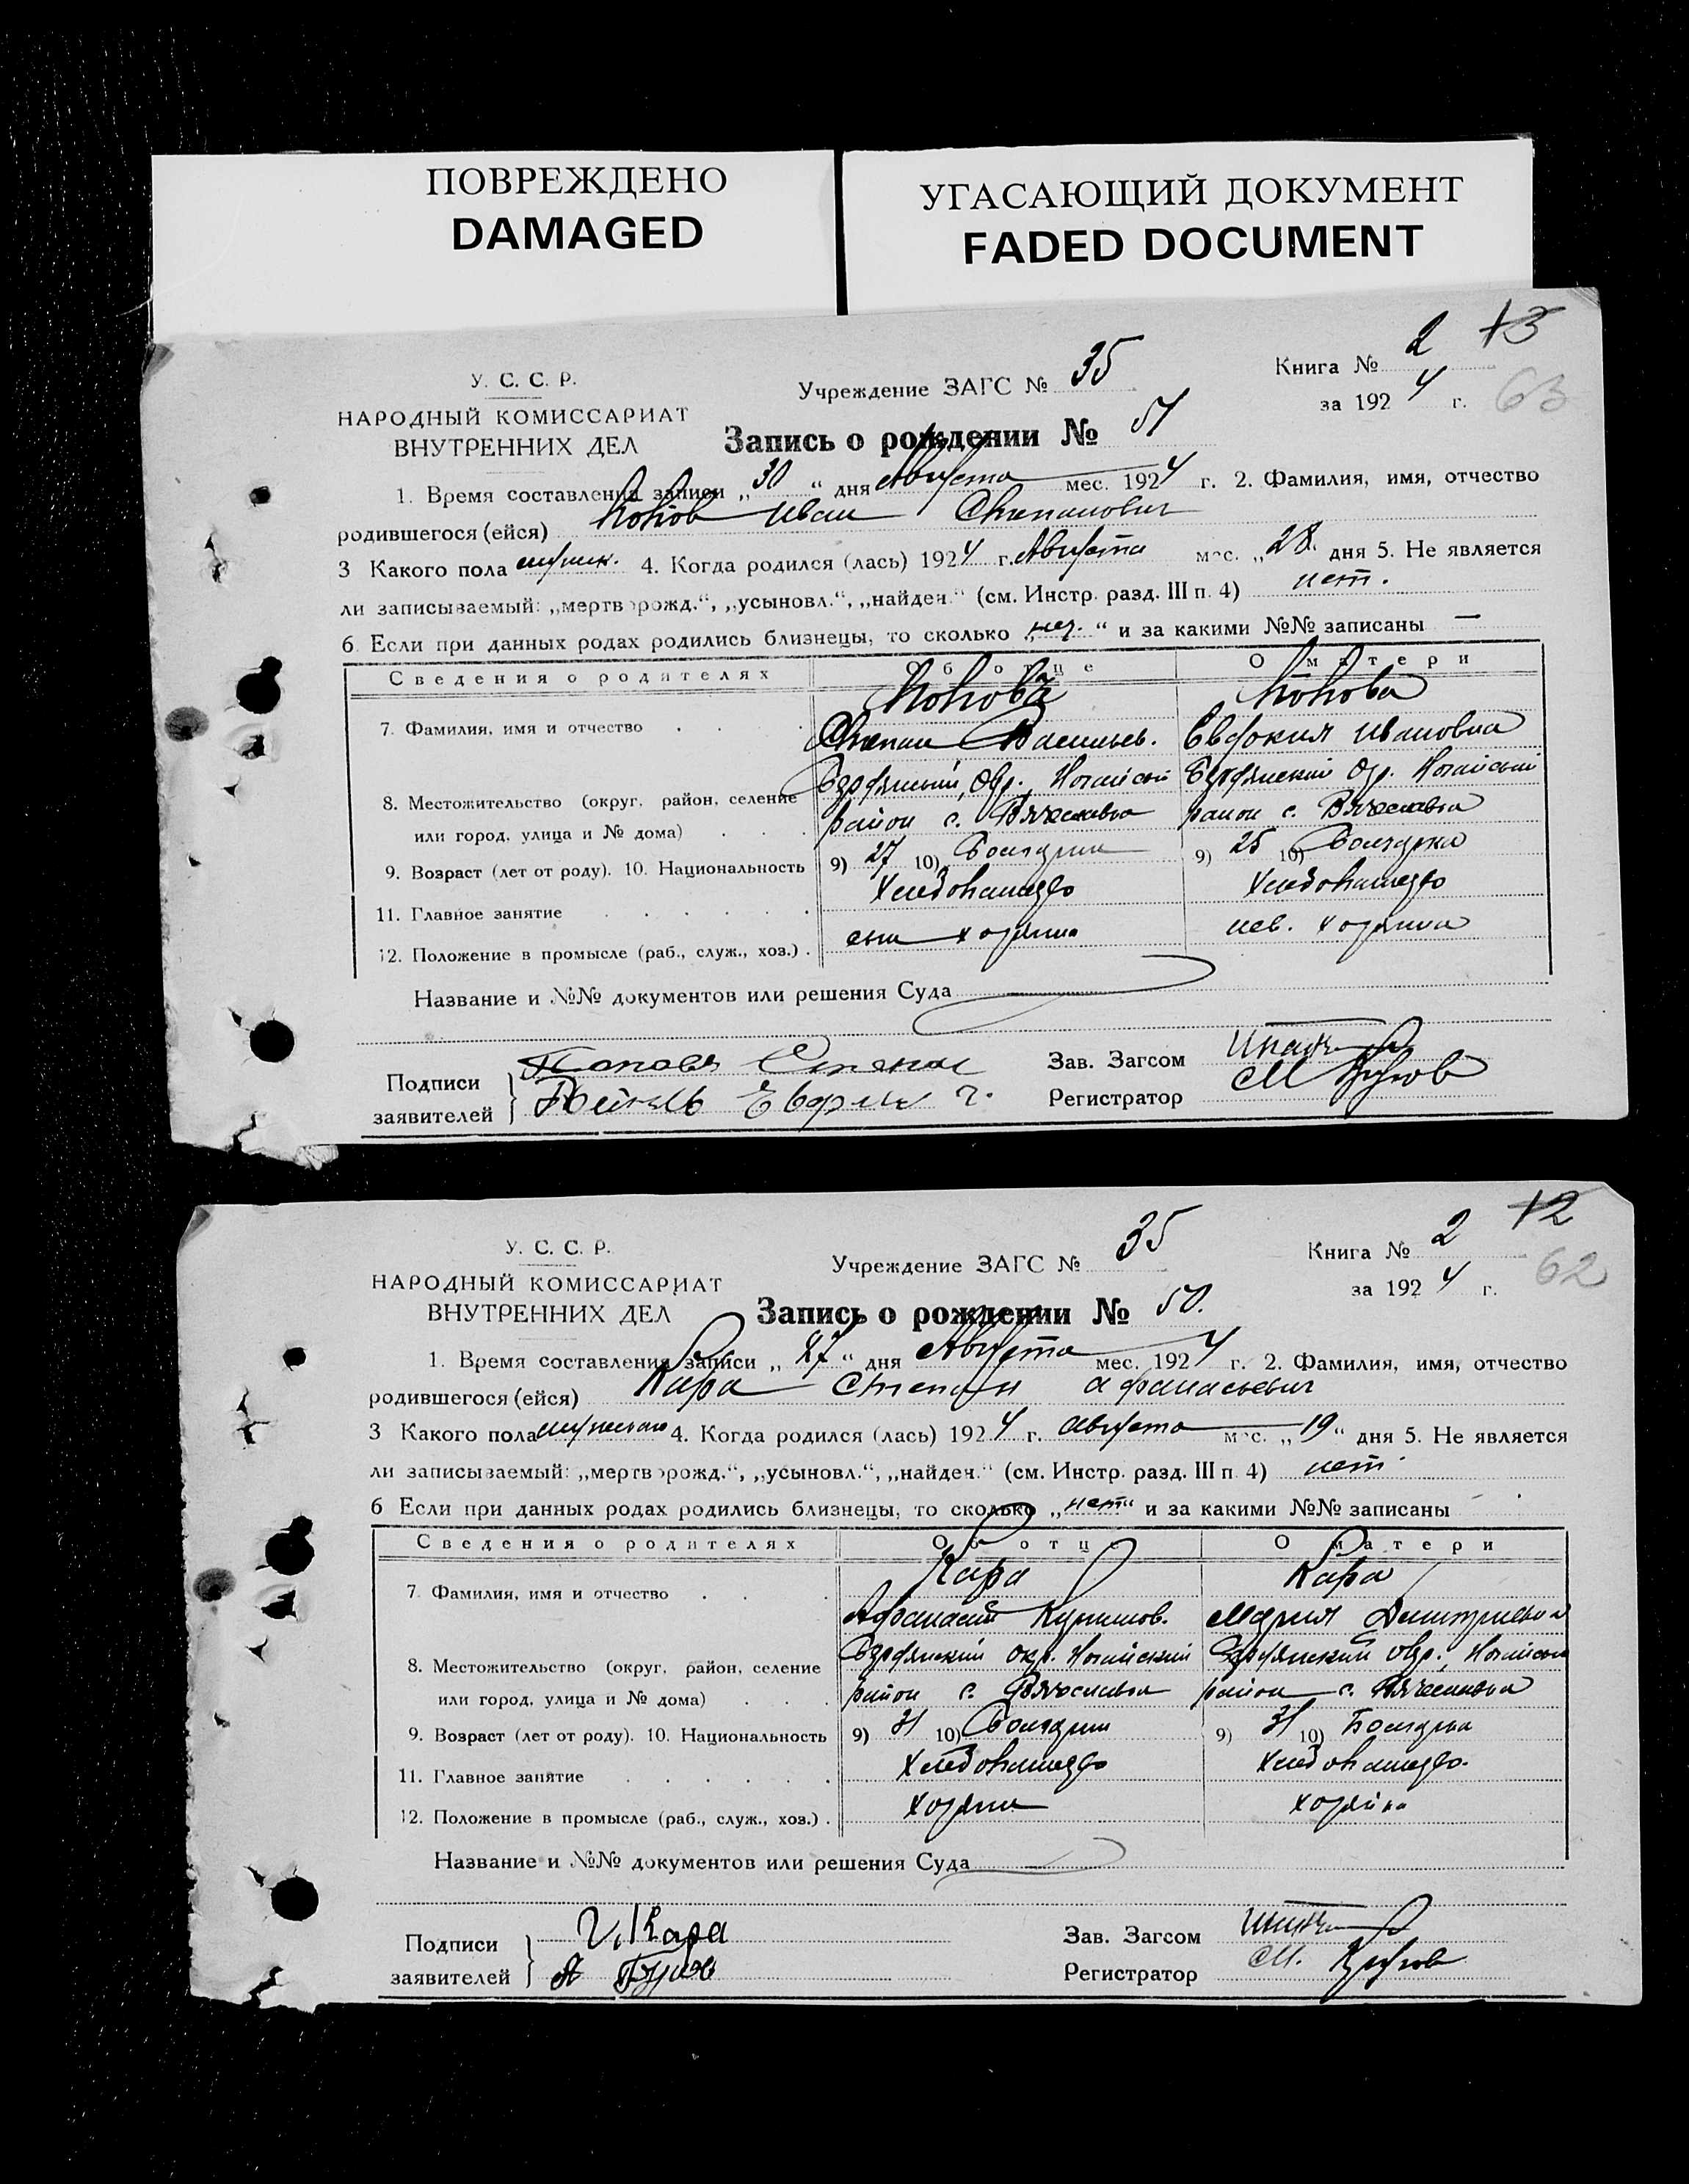 ПОВРЕЖДЕНО
DAMAGED
УГАСАЮЩИЙ ДОКУМЕНТ
FADED DOCUMENT
У. С. С. Р.
НАРОДНЫЙ КОМИССАРИАТ
ВНУТРЕННИХ ДЕЛ
Учреждение ЗАГС № 35
Книга № 2 13
за 192 4 г. 63
Запись о рождении № 51
1. Время составления записи „ 30 “ дня Августа мес. 192 4 г. 2. Фамилия, имя, отчество
родившегося (ейся) Попов Иван Степанович
3 Какого пола мужск. 4. Когда родился (лась) 192 4 г. Августа мес. „ 28 “ дня 5. Не является
ли записываемый: „мертворожд.“, „усыновл.“, „найден.“ (см. Инстр. разд. III п. 4) нет.
6 Если при данных родах родились близнецы, то сколько „ “ и за какими №№ записаны —
Сведения о родителях Об отце О матери
7. Фамилия, имя и отчество Попова Попова
Степан Васильев. Евдокия Ивановна
8. Местожительство (округ, район, селение Ногайский Ногайский
или город, улица и № дома) район с. Вячеславка район с. Вячеславка
9. Возраст (лет от роду). 10. Национальность 9) 27 10) Болгарин 9) 25 10) Болгарка
11. Главное занятие Хлебопашество Хлебопашество
12. Положение в промысле (раб., служ., хоз.) сын хозяина нев. хозяина
Название и №№ документов или решения Суда
Подписи
заявителей
Попов Степан
Зав. Загсом
Регистратор
У. С. С. Р.
НАРОДНЫЙ КОМИССАРИАТ
ВНУТРЕННИХ ДЕЛ
Учреждение ЗАГС № 35
Книга № 2 12
за 192 4 г. 62
Запись о рождении № 50.
1. Время составления записи „ 27 “ дня Августа мес. 192 4 г. 2. Фамилия, имя, отчество
родившегося (ейся) Кара Степан Афанасьевич
3 Какого пола мужского 4. Когда родился (лась) 192 4 г. Августа мес. „ 19 “ дня 5. Не является
ли записываемый: „мертворожд.“, „усыновл.“, „найден.“ (см. Инстр. разд. III п. 4) нет
6 Если при данных родах родились близнецы, то сколько „ нет “ и за какими №№ записаны
Сведения о родителях Об отце О матери
7. Фамилия, имя и отчество Кара Кара
Афанасий Мария Дмитриевна
8. Местожительство (округ, район, селение окр. Ногайский Ногайский
или город, улица и № дома) район с. Вячеславка район с. Вячеславка
9. Возраст (лет от роду). 10. Национальность 9) 31 10) Болгарин 9) 31 10) Болгарка
11. Главное занятие Хлебопашество Хлебопашество.
12. Положение в промысле (раб., служ., хоз.) хозяин хозяйка
Название и №№ документов или решения Суда
Подписи
заявителей
Кара
Зав. Загсом
Регистратор